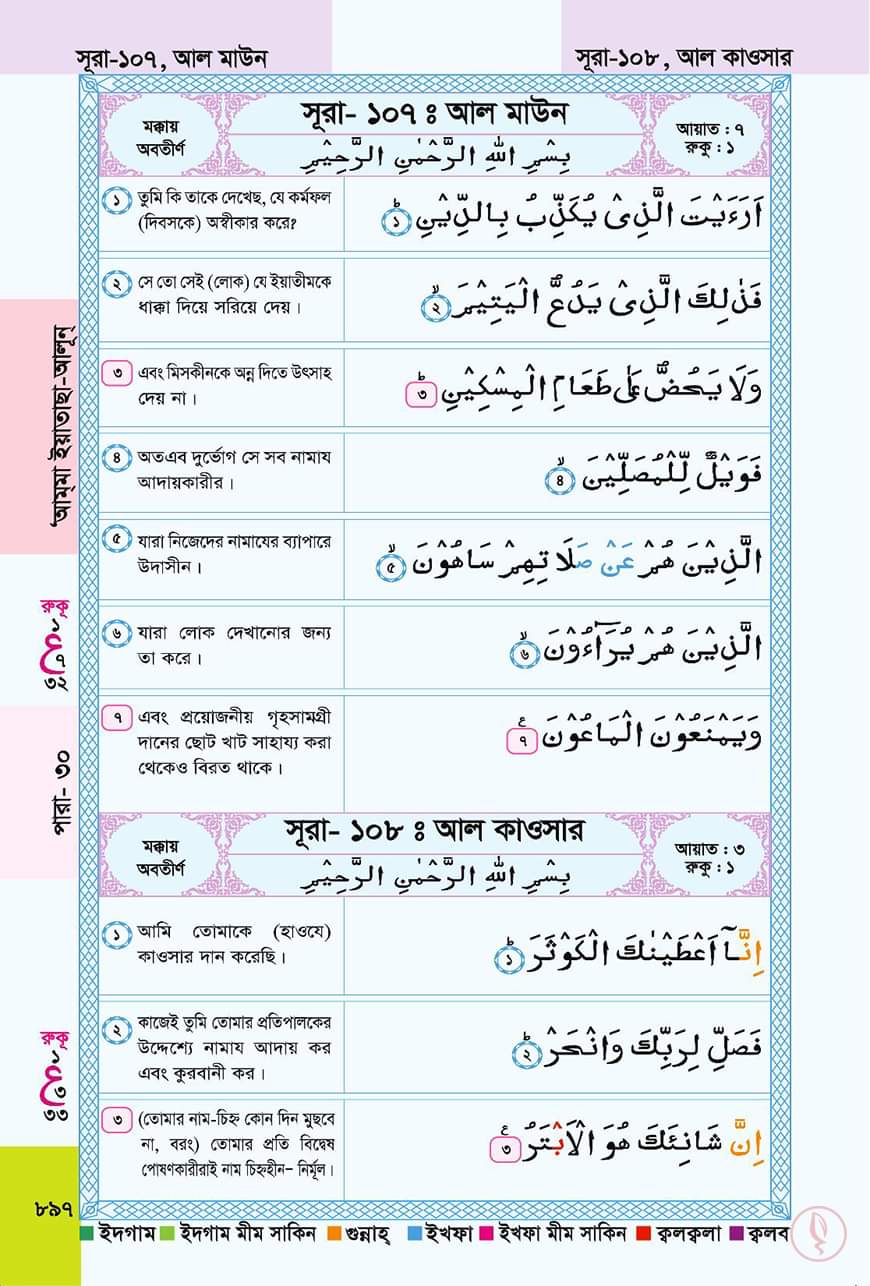 সূরা-১০৭, আল মাউন
সূরা-১০৮, আল কাওসার
সূরা- ১০৭ ঃ আল মাউন
মক্কায়
অবতীর্ণ
بِسْمِ اللهِ الرَّحْمٰنِ الرَّحِيْمِ
আয়াত : ৭
রুকু : ১
১ তুমি কি তাকে দেখেছ, যে কর্মফল
(দিবসকে) অস্বীকার করে?
اَرَءَيْتَ الَّذِىْ يُكَذِّبُ بِالدِّيْنِ ؕ ১
২ সে তো সেই (লোক) যে ইয়াতীমকে
ধাক্কা দিয়ে সরিয়ে দেয়।
فَذٰلِكَ الَّذِىْ يَدُعُّ الْيَتِيْمَ ۙ ২
৩ এবং মিসকীনকে অন্ন দিতে উৎসাহ
দেয় না।
وَلَا يَحُضُّ عَلٰى طَعَامِ الْمِسْكِيْنِ ؕ ৩
৪ অতএব দুর্ভোগ সে সব নামায
আদায়কারীর।
فَوَيْلٌ لِّلْمُصَلِّيْنَ ۙ ৪
৫ যারা নিজেদের নামাযের ব্যাপারে
উদাসীন।
الَّذِيْنَ هُمْ عَنْ صَلَاتِهِمْ سَاهُوْنَ ۙ ৫
৬ যারা লোক দেখানোর জন্য
তা করে।
الَّذِيْنَ هُمْ يُرَآءُوْنَ ۙ ৬
৭ এবং প্রয়োজনীয় গৃহসামগ্রী
দানের ছোট খাট সাহায্য করা
থেকেও বিরত থাকে।
وَيَمْنَعُوْنَ الْمَاعُوْنَ ع ৭
সূরা- ১০৮ ঃ আল কাওসার
মক্কায়
অবতীর্ণ
بِسْمِ اللهِ الرَّحْمٰنِ الرَّحِيْمِ
আয়াত : ৩
রুকু : ১
১ আমি তোমাকে (হাওযে)
কাওসার দান করেছি।
اِنَّاۤ اَعْطَيْنٰكَ الْكَوْثَرَ ؕ ১
২ কাজেই তুমি তোমার প্রতিপালকের
উদ্দেশ্যে নামায আদায় কর
এবং কুরবানী কর।
فَصَلِّ لِرَبِّكَ وَانْحَرْ ؕ ২
৩ (তোমার নাম-চিহ্ন কোন দিন মুছবে
না, বরং) তোমার প্রতি বিদ্বেষ
পোষণকারীরাই নাম চিহ্নহীন– নির্মূল।
اِنَّ شَانِئَكَ هُوَ الْاَبْتَرُ ع ৩
'আম্মা ইয়াতাছা-আলূন্
রুকূ
পারা- ৩০
রুকূ
৮৯৭
ইদগাম ইদগাম মীম সাকিন গুন্নাহ্ ইখফা ইখফা মীম সাকিন ক্বলক্বলা ক্বলব